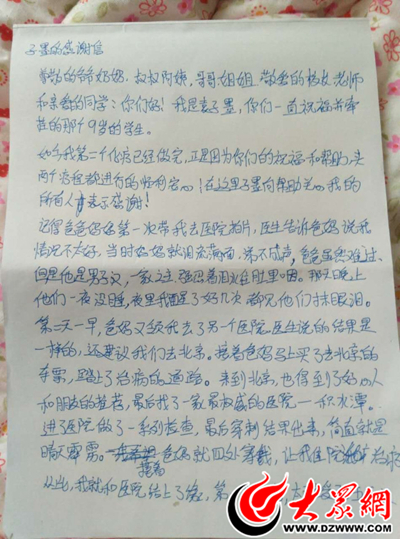 子墨的感谢信
尊敬的爷爷奶奶、叔叔阿姨、哥哥姐姐、敬爱的校长、老师
和亲爱的同学：你们好！我是袁子墨，你们一直祝福并牵
挂的那个9岁的学生。
如今我第二个化疗已经做完，正是因为你们的祝福和帮助，头
两个疗程都进行的顺利。在这里子墨向帮助关心我的
所有人表示感谢！
记得爸爸妈妈第一次带我去医院拍片，医生告诉爸妈说我
情况不太好，当时妈妈就泪流满面，泣不成声，爸爸虽然难过
但是他是男子汉，一家之主，强忍着泪水往肚里咽。那天晚上
他们一夜没睡，夜里我醒了好几次都见他们抹眼泪。
第二天一早，爸妈又领我去了另一个医院，医生说的结果是
一样的，还建议我们去北京。接着爸妈马上买了去北京的
车票，踏上了治病的道路。来到北京，也得到了好心人
和朋友的推荐，最后找了一家最权威的医院—积水潭。
进了医院做了一系列检查，最后穿刺结果出来，简直就是
晴天霹雳。爸妈就四处筹钱，让我住院
从此，我就和医院结上了缘，第
大众网
www.dzwww.com